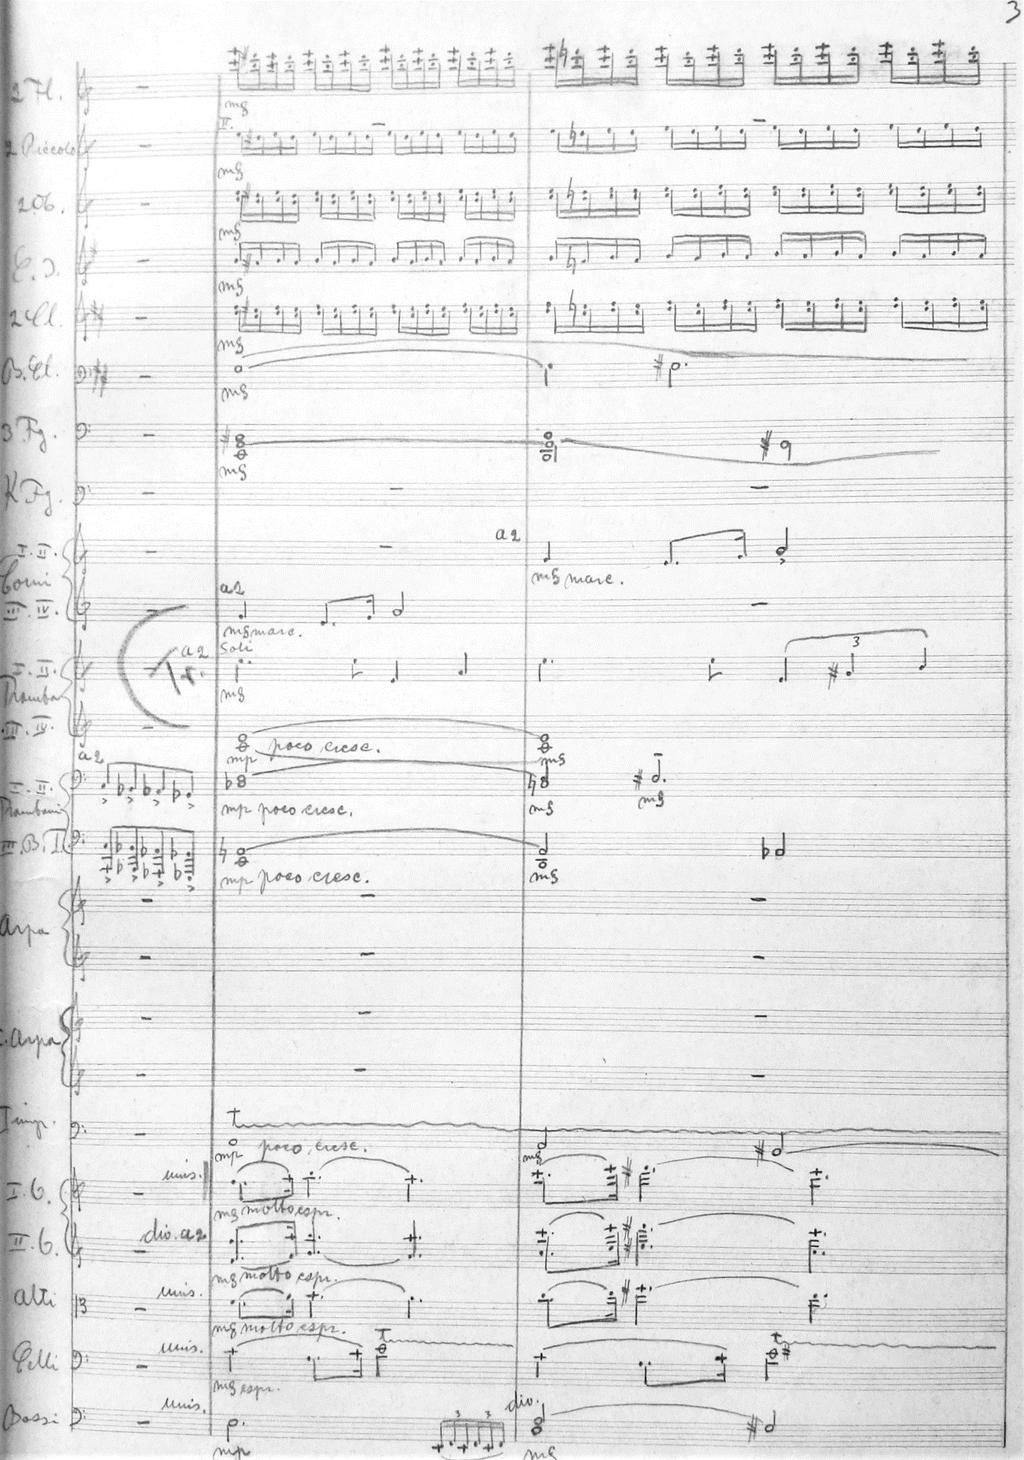 3
2 Fl.
mf
II.
2 Piccolo
mf
2 Ob.
mf
E. I.
mf
2 Cl.
mf
B. Cl.
mf
3 Fg.
mf
K Fg.
a 2
I. II.
mf marc.
Corni
a 2
III. IV.
mf marc.
Soli
a 2
I. II.
Tr.
mf
Tromba
III. IV.
poco cresc.
mp
mf
a 2
I. II.
mf
mp poco cresc.
mf
Tromboni
III. B. T.
mp poco cresc.
mf
Arpa
Arpa
Timp.
poco cresc.
mp
mf
unis.
I. G.
mf molto espr.
div. a 2
II. G.
mf molto espr.
unis.
Alti
mf molto espr.
unis.
Celli
mf espr.
unis.
div.
Bassi
3
3
mp
mf